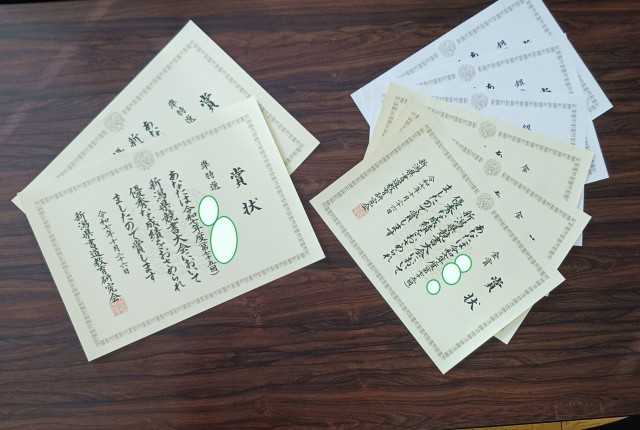 賞状
準特選
あなたは令和七年度第十六回
新潟県競書大会において
優秀な成績をおさめられ
ましたので賞します
令和七年十月二十六日
新潟県書道教育研究会
賞
準特選
あな
新
賞状
金賞
あなたは令和七年度第十六回
新潟県競書大会において
優秀な成績をおさめられ
ましたので賞します
新潟県書道教育研究会
金
金
銀
銀
銀